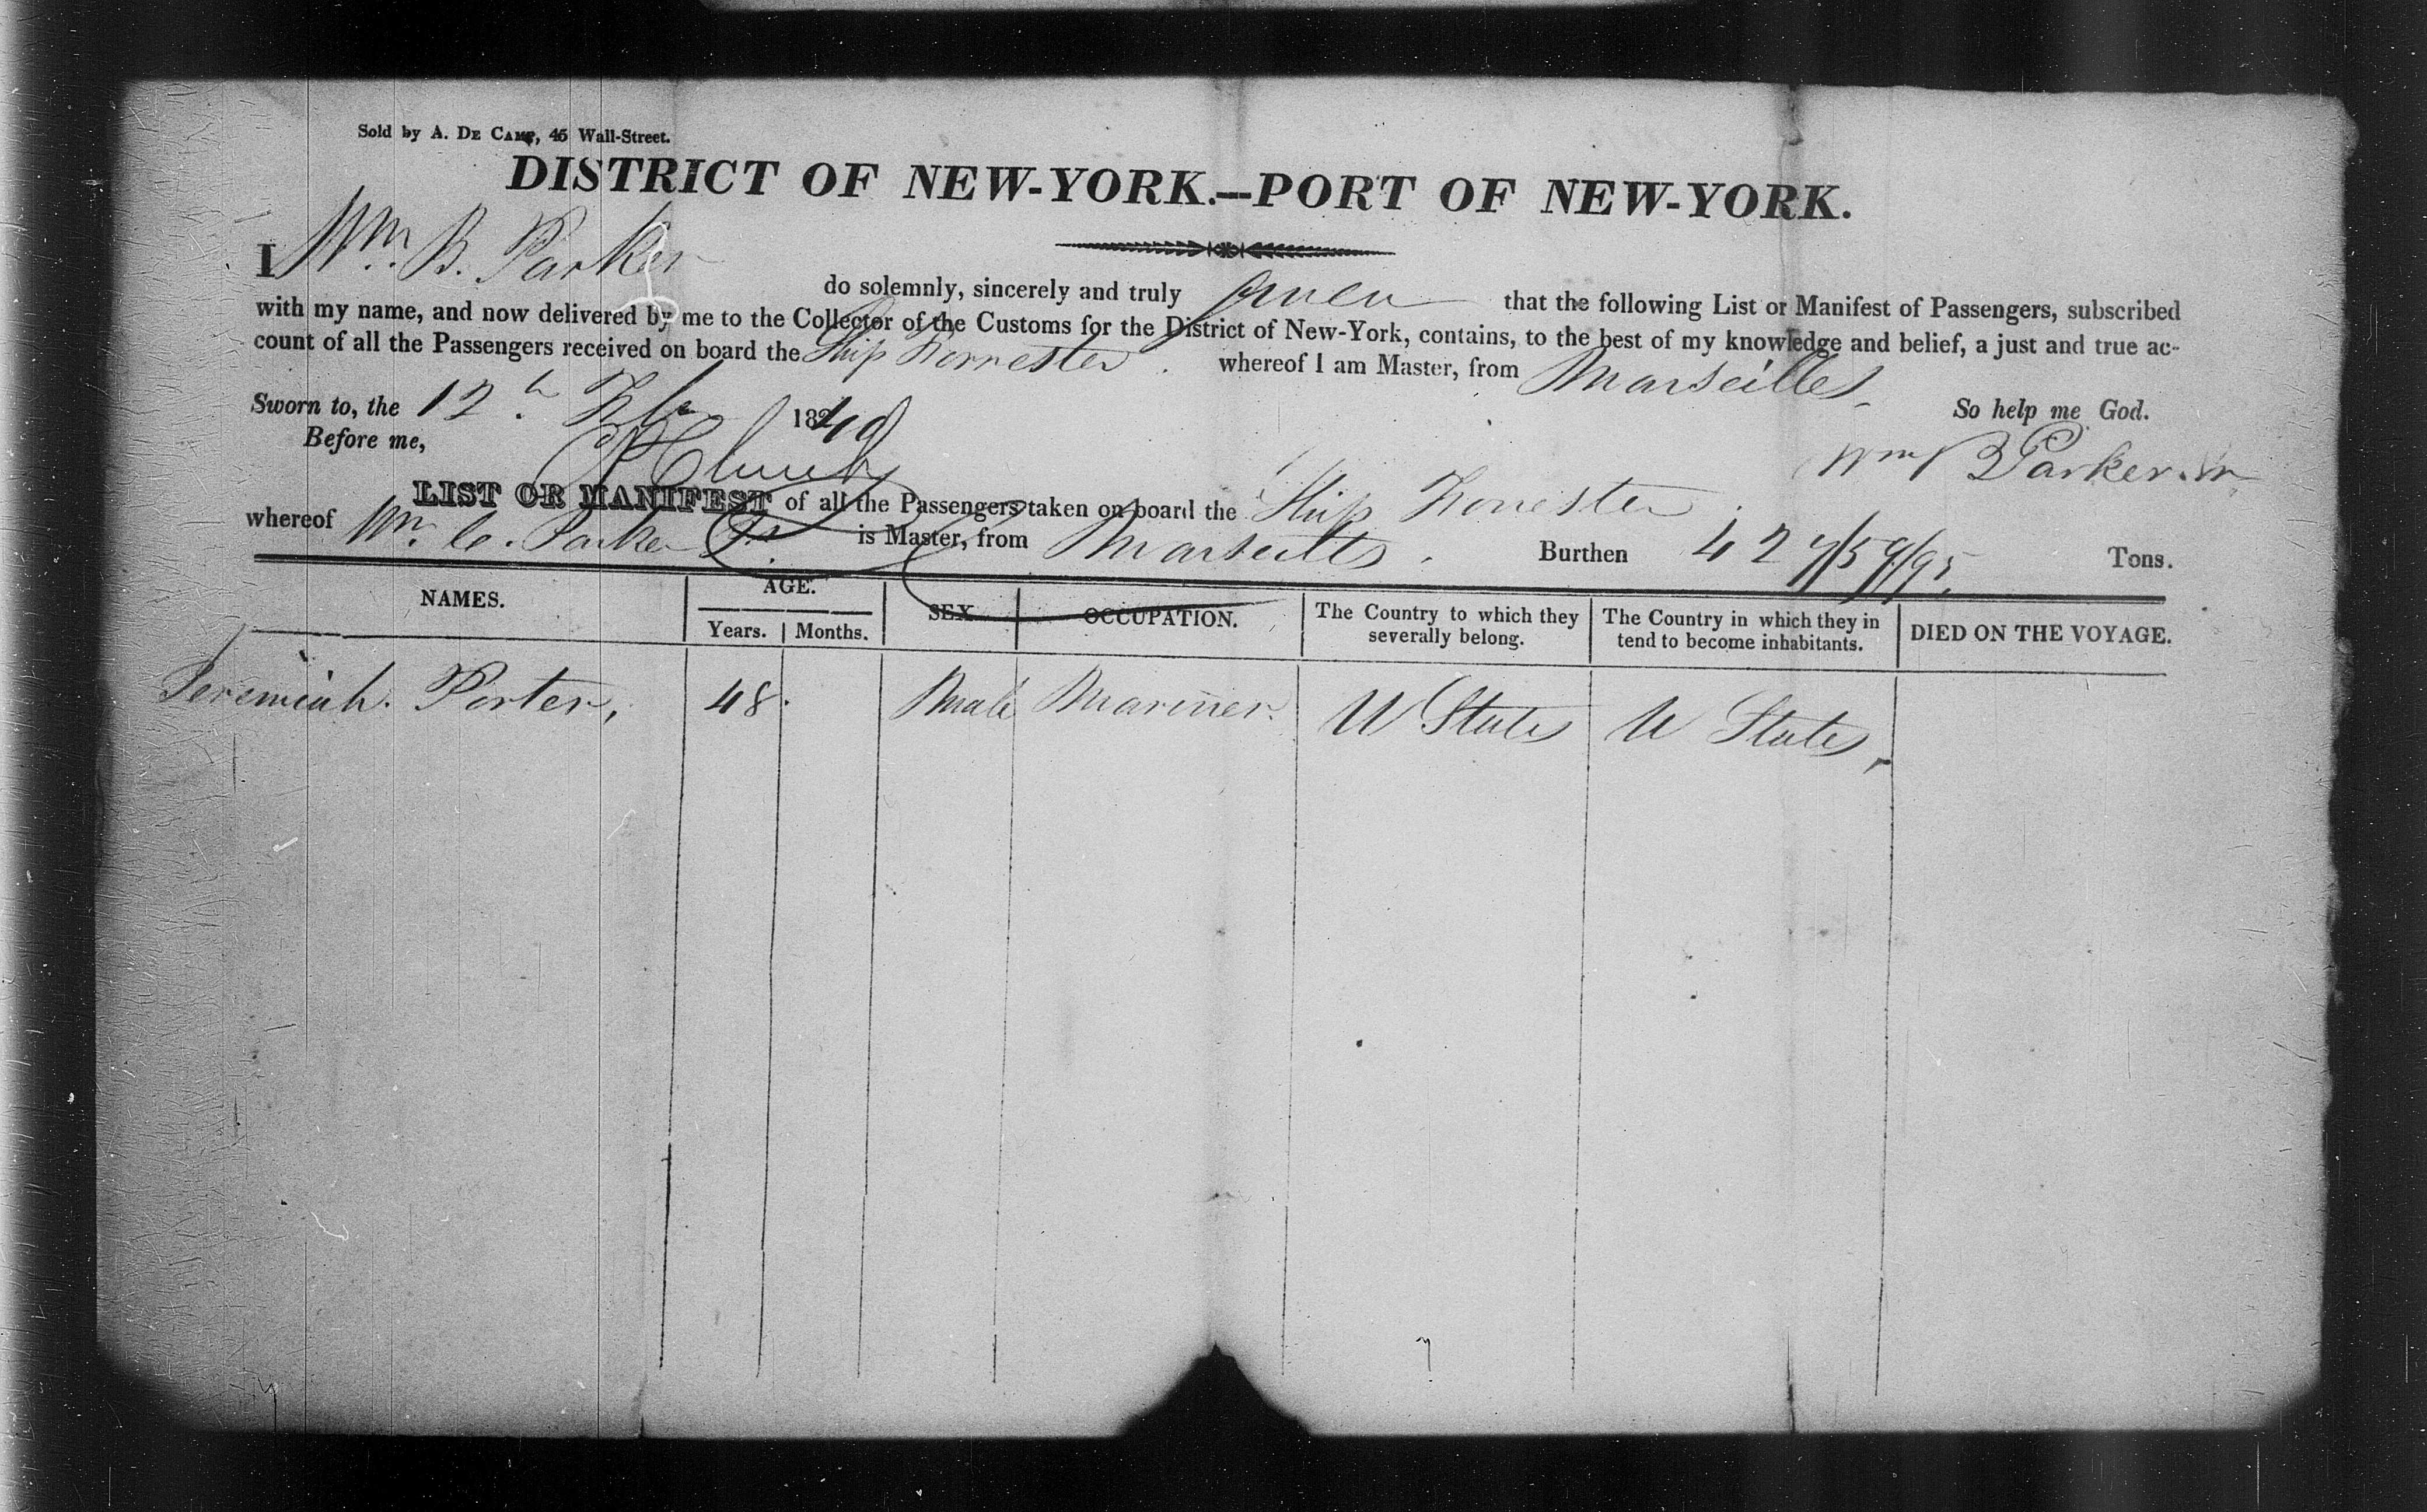 Sold by A. De Camp, 45 Wall-Street.
DISTRICT OF NEW-YORK.—PORT OF NEW-YORK.
I Wm. B. Parker do solemnly, sincerely and truly that the following List or Manifest of Passengers, subscribed
with my name, and now delivered by me to the Collector of the Customs for the District of New-York, contains, to the best of my knowledge and belief, a just and true ac-
count of all the Passengers received on board the Ship Forrester whereof I am Master, from Marseilles
Sworn to, the 12th Feb 1840 So help me God.
Before me, Wm B Parker Jr
LIST OR MANIFEST of all the Passengers taken on board the Ship Forrester
whereof Wm. Parker Jr. is Master, from Marseilles. Burthen 427/59/95 Tons.
NAMES. AGE. Years. Months. SEX OCCUPATION. The Country to which they severally belong. The Country in which they in tend to become inhabitants. DIED ON THE VOYAGE.
Jeremiah Porter, 48 Male Mariner. U States U States,